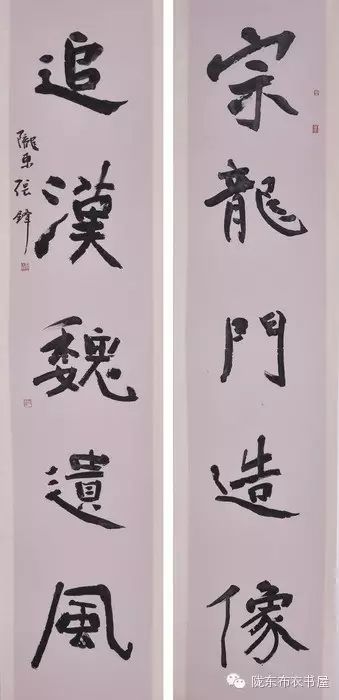 宗龍門造像
追漢魏遺風
隴東張鋒
陇东布衣书屋